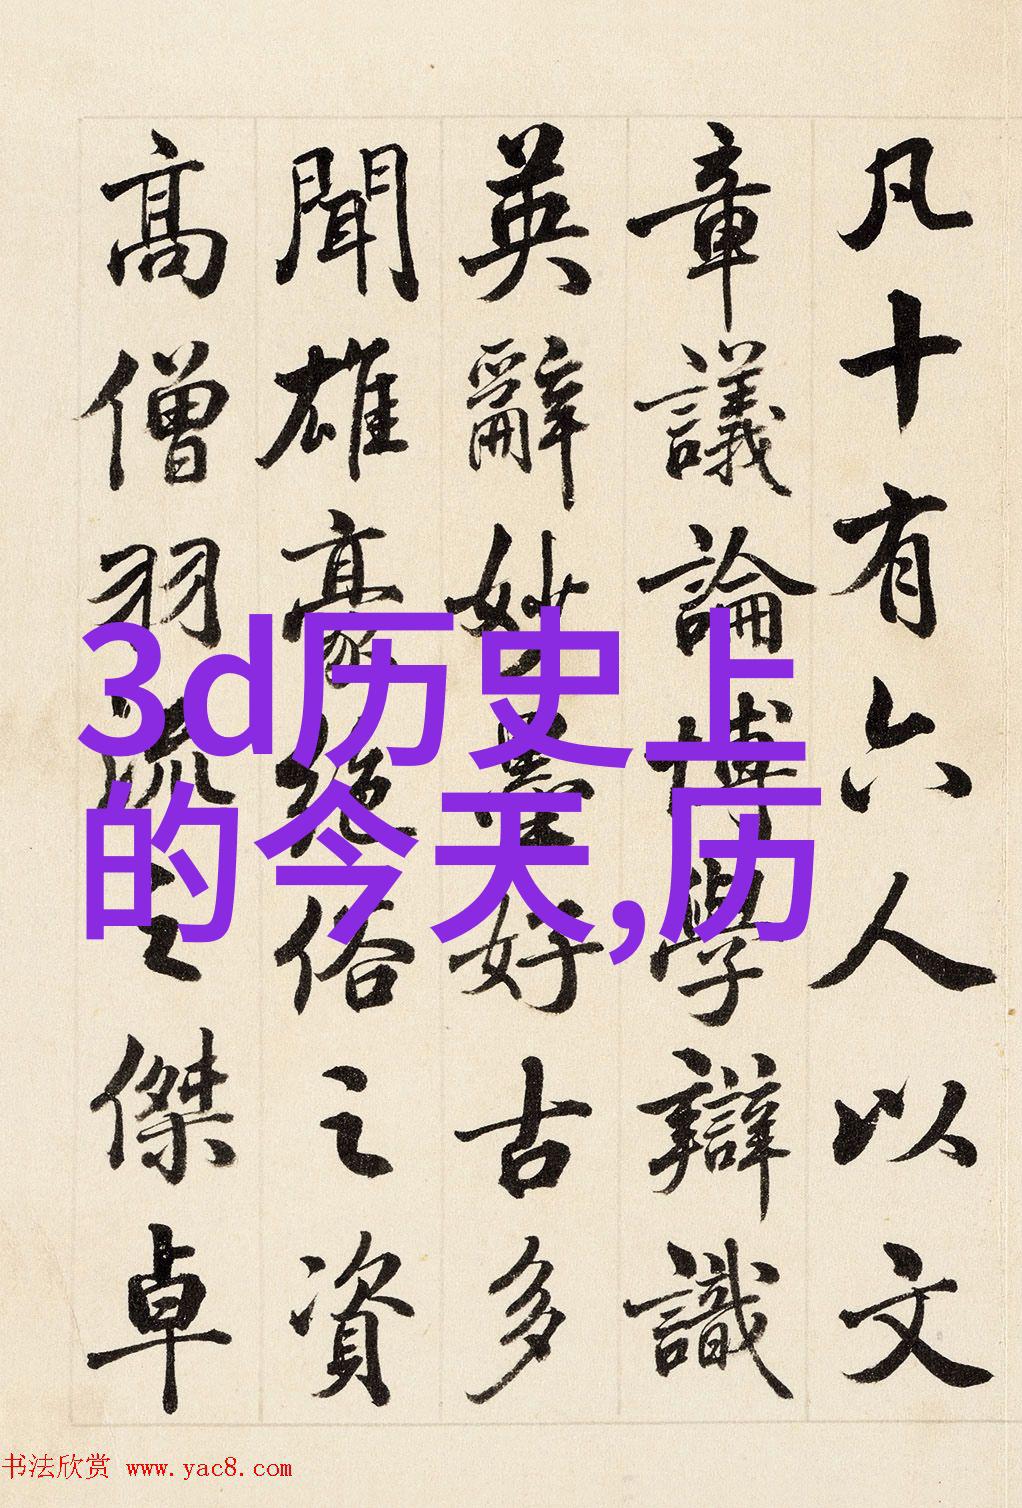 凡十有六人以文
章議論博學辯識
英辭妙墨好古多
聞雄豪絕俗之資
高僧羽流之傑卓
3d历史上
的今天,历
书法欣赏 www.yac8.com